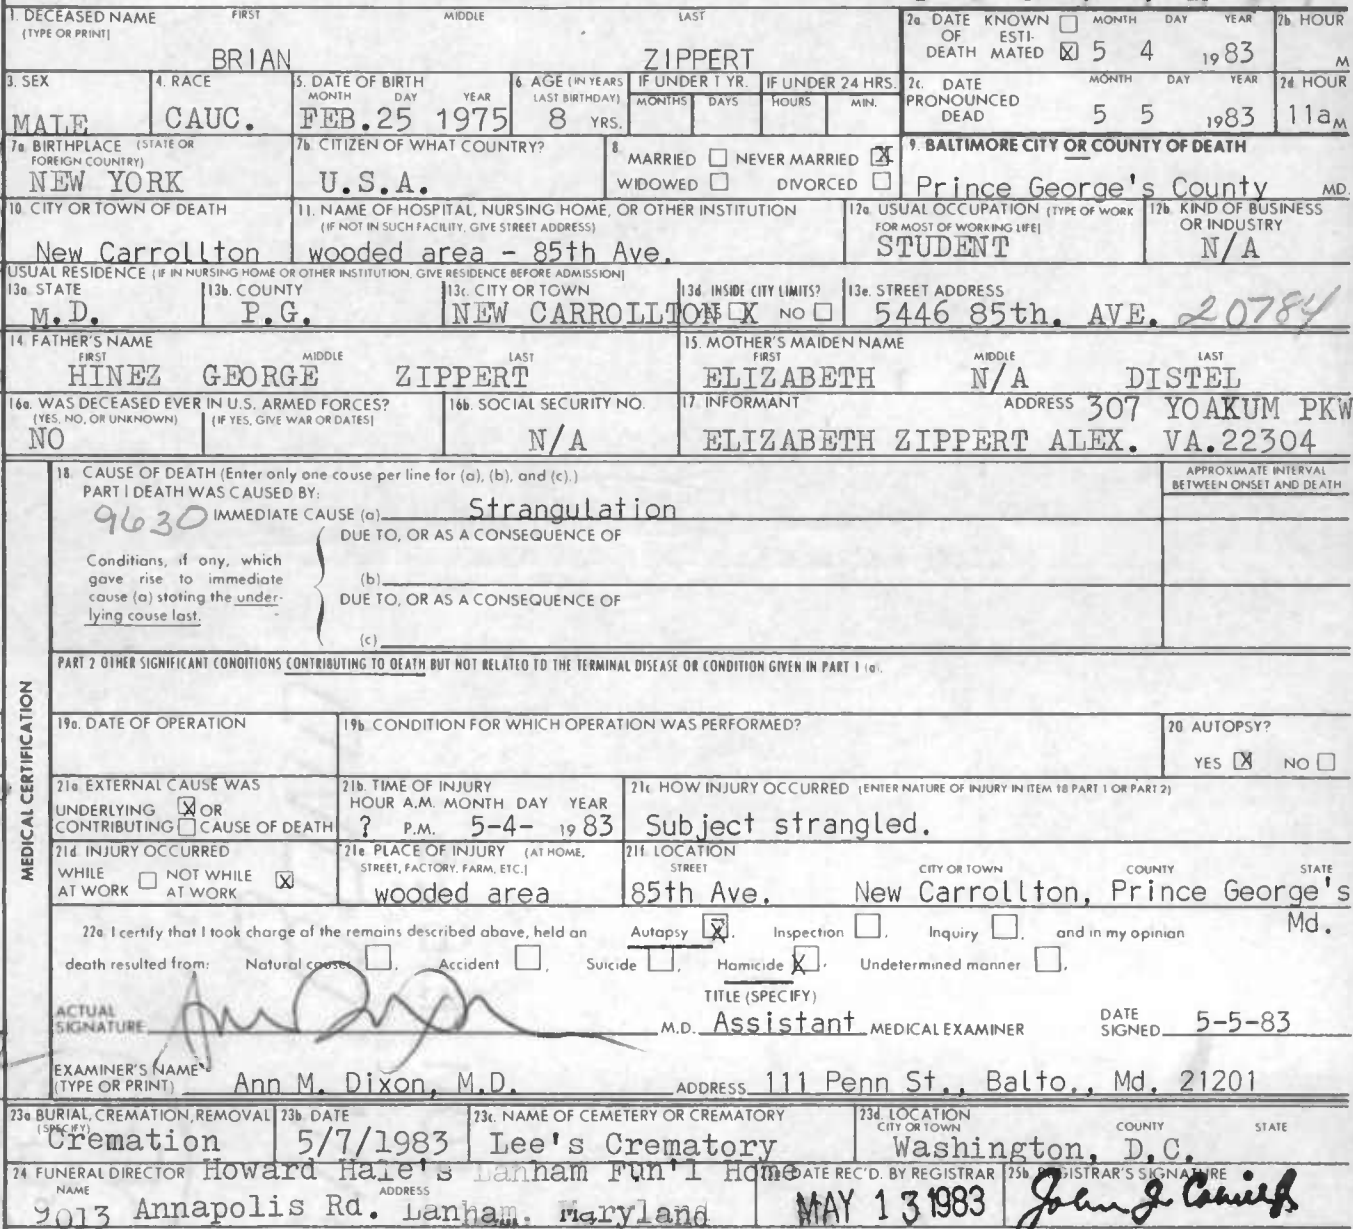 1. DECEASED NAME FIRST MIDDLE LAST
(TYPE OR PRINT)
BRIAN ZIPPERT
2a. DATE KNOWN MONTH DAY YEAR
OF ESTI-
DEATH MATED X 5 4 1983
2b. HOUR
M
3. SEX
MALE
4. RACE
CAUC.
5. DATE OF BIRTH
MONTH DAY YEAR
FEB.25 1975
6. AGE (IN YEARS
LAST BIRTHDAY)
8 YRS.
IF UNDER 1 YR.
MONTHS DAYS
IF UNDER 24 HRS.
HOURS MIN.
2c. DATE MONTH DAY YEAR
PRONOUNCED
DEAD 5 5 1983
2d. HOUR
11a M
7a. BIRTHPLACE (STATE OR
FOREIGN COUNTRY)
NEW YORK
7b. CITIZEN OF WHAT COUNTRY?
U.S.A.
8.
MARRIED NEVER MARRIED X
WIDOWED DIVORCED
9. BALTIMORE CITY OR COUNTY OF DEATH
Prince George's County MD.
10. CITY OR TOWN OF DEATH
New Carrollton
11. NAME OF HOSPITAL, NURSING HOME, OR OTHER INSTITUTION
(IF NOT IN SUCH FACILITY, GIVE STREET ADDRESS)
wooded area - 85th Ave.
12a. USUAL OCCUPATION (TYPE OF WORK
FOR MOST OF WORKING LIFE)
STUDENT
12b. KIND OF BUSINESS
OR INDUSTRY
N/A
USUAL RESIDENCE (IF IN NURSING HOME OR OTHER INSTITUTION, GIVE RESIDENCE BEFORE ADMISSION)
13a. STATE
M.D.
13b. COUNTY
P.G.
13c. CITY OR TOWN
NEW CARROLLTON
13d. INSIDE CITY LIMITS?
YES X NO
13e. STREET ADDRESS
5446 85th. AVE. 20784
14. FATHER'S NAME
FIRST MIDDLE LAST
HINEZ GEORGE ZIPPERT
15. MOTHER'S MAIDEN NAME
FIRST MIDDLE LAST
ELIZABETH N/A DISTEL
16a. WAS DECEASED EVER IN U.S. ARMED FORCES?
(YES, NO, OR UNKNOWN) (IF YES, GIVE WAR OR DATES)
NO
16b. SOCIAL SECURITY NO.
N/A
17. INFORMANT ADDRESS 307 YOAKUM PKW
ELIZABETH ZIPPERT ALEX. VA.22304
MEDICAL CERTIFICATION
18. CAUSE OF DEATH (Enter only one couse per line for (a), (b), and (c).)
PART I DEATH WAS CAUSED BY:
9630 IMMEDIATE CAUSE (a) Strangulation
APPROXIMATE INTERVAL
BETWEEN ONSET AND DEATH
DUE TO, OR AS A CONSEQUENCE OF
Conditions, if any, which
gave rise to immediate
cause (a) stoting the under-
lying couse last.
(b)
DUE TO, OR AS A CONSEQUENCE OF
(c)
PART 2 OTHER SIGNIFICANT CONDITIONS CONTRIBUTING TO DEATH BUT NOT RELATED TO THE TERMINAL DISEASE OR CONDITION GIVEN IN PART 1 (a).
19a. DATE OF OPERATION
19b. CONDITION FOR WHICH OPERATION WAS PERFORMED?
20. AUTOPSY?
YES X NO
21a. EXTERNAL CAUSE WAS
UNDERLYING X OR
CONTRIBUTING CAUSE OF DEATH
21b. TIME OF INJURY
HOUR A.M. MONTH DAY YEAR
? P.M. 5-4- 1983
21c. HOW INJURY OCCURRED (ENTER NATURE OF INJURY IN ITEM 18 PART 1 OR PART 2)
Subject strangled.
21d. INJURY OCCURRED
WHILE NOT WHILE
AT WORK AT WORK X
21e. PLACE OF INJURY (AT HOME,
STREET, FACTORY, FARM, ETC.)
wooded area
21f. LOCATION
STREET CITY OR TOWN COUNTY STATE
85th Ave. New Carrollton, Prince George's
Md.
22a. I certify that I took charge of the remains described above, held an Autopsy X, Inspection, Inquiry, and in my opinion
death resulted from: Natural causes, Accident, Suicide, Homicide X, Undetermined manner.
TITLE (SPECIFY)
ACTUAL
SIGNATURE M.D. Assistant MEDICAL EXAMINER
DATE
SIGNED 5-5-83
EXAMINER'S NAME
(TYPE OR PRINT) Ann M. Dixon, M.D. ADDRESS 111 Penn St., Balto., Md. 21201
23a. BURIAL, CREMATION, REMOVAL
(SPECIFY)
Cremation
23b. DATE
5/7/1983
23c. NAME OF CEMETERY OR CREMATORY
Lee's Crematory
23d. LOCATION
CITY OR TOWN COUNTY STATE
Washington, D.C.
24. FUNERAL DIRECTOR Howard Hale's Lanham Fun'l Home
NAME ADDRESS
9013 Annapolis Rd. Lanham, Maryland
DATE REC'D. BY REGISTRAR
MAY 13 1983
25b. REGISTRAR'S SIGNATURE